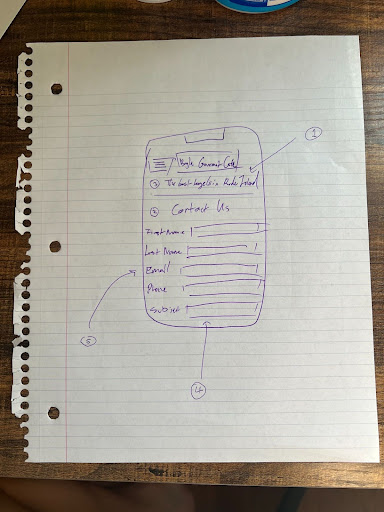 Bagle Gourmet Cafe
① The best bagels in Rhode Island
② Contact Us
First Name
Last Name
Email
Phone
Subject
①
⑤
④